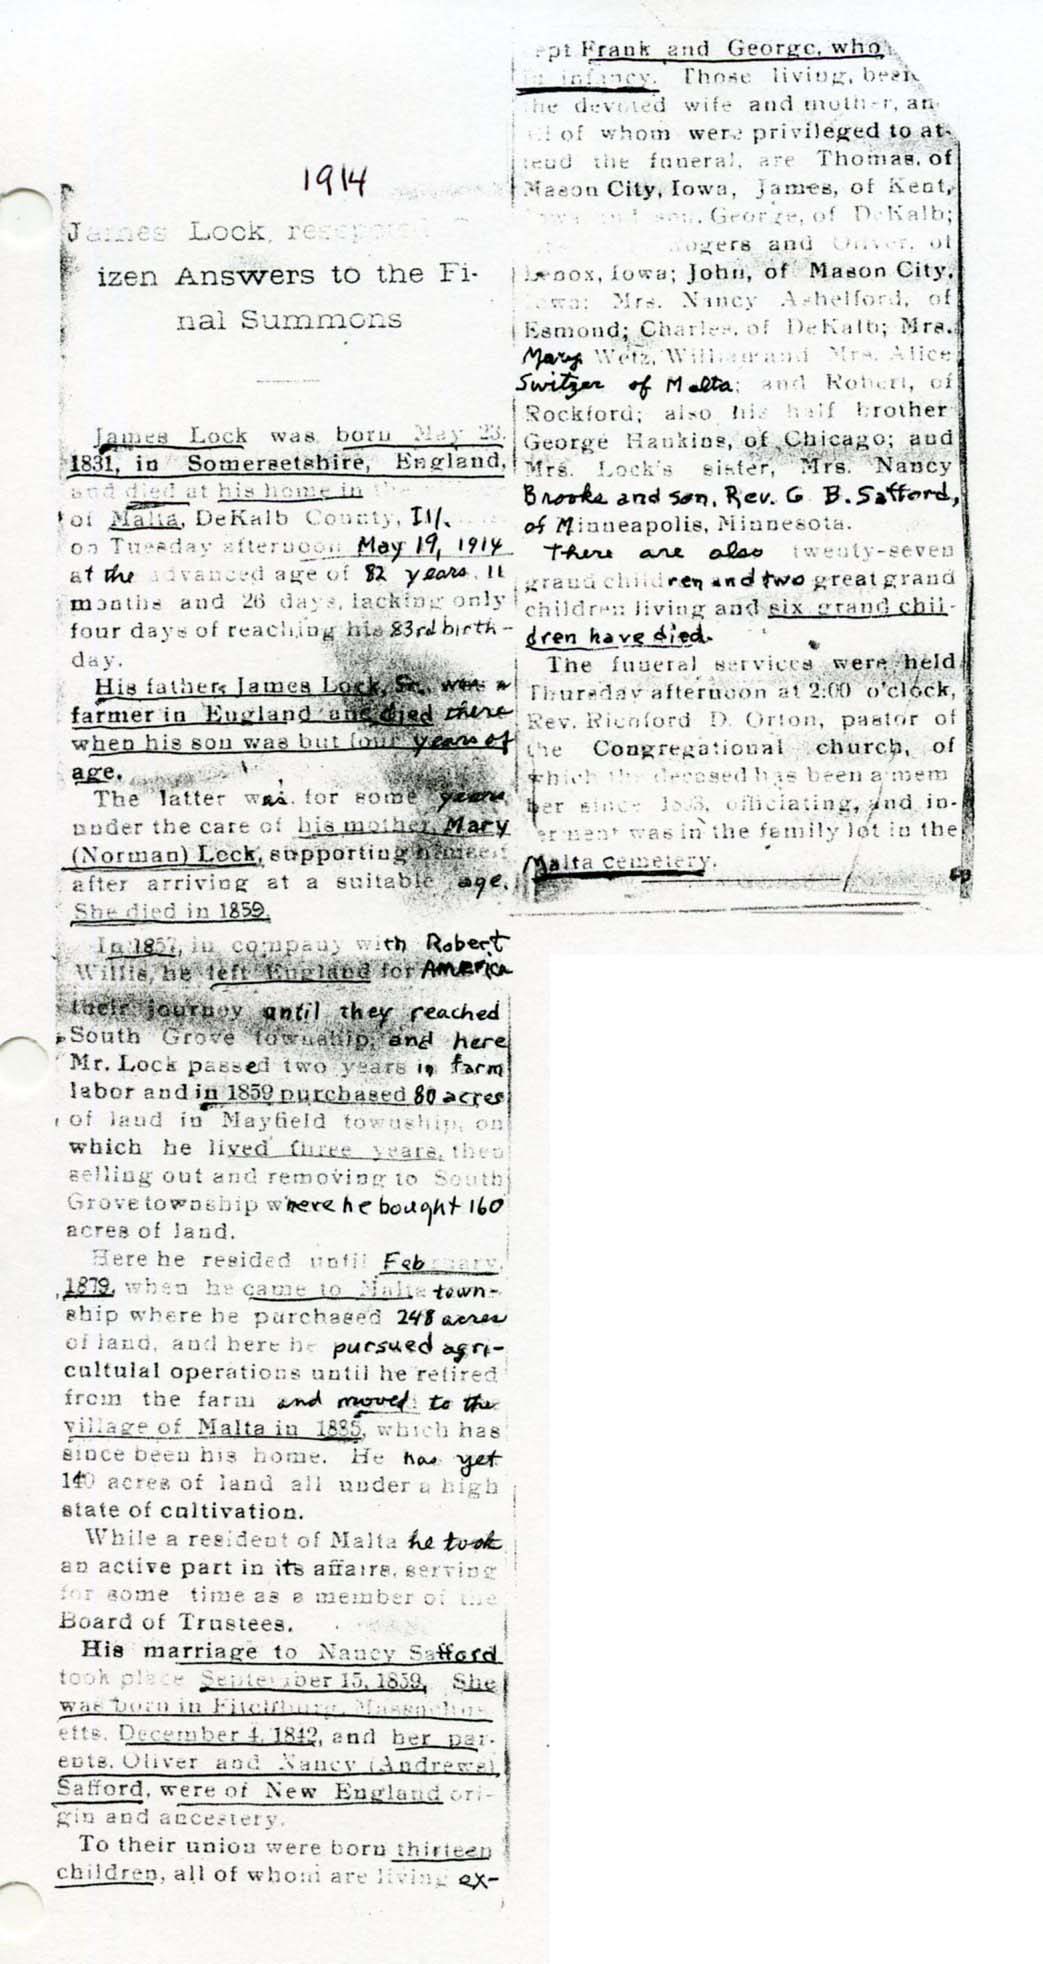 1914
James Lock,
izen Answers to the Fi-
nal Summons
James Lock was born May 23,
1831, in Somersetshire, England,
and died at his home in the
of Malta, DeKalb County, Ill.
on Tuesday afternoon May 19, 1914
at the advanced age of 82 years, 11
months and 26 days, lacking only
four days of reaching his 83rd birth-
day.
His father, James Lock, Sr., was a
farmer in England and died there
when his son was but four years of
age.
The latter was for some years
under the care of his mother, Mary
(Norman) Lock, supporting himself
after arriving at a suitable age.
She died in 1859.
In 1857, in company with Robert
Willis, he left England for America
their journey until they reached
South Grove township, and here
Mr. Lock passed two years in farm
labor and in 1859 purchased 80 acres
of land in Mayfield township, on
which he lived three years, then
selling out and removing to South
Grove township where he bought 160
acres of land.
Here he resided until February,
1879, when he came to Malta town-
ship where he purchased 248 acres
of land, and here he pursued agri-
cultulal operations until he retired
from the farm and moved to the
village of Malta in 1885, which has
since been his home. He has yet
140 acres of land all under a high
state of cultivation.
While a resident of Malta he took
an active part in its affairs, serving
for some time as a member of the
Board of Trustees.
His marriage to Nancy Safford
took place September 15, 1859. She
was born in Fitchburg, Massachus-
etts, December 4, 1842, and her par-
ents, Oliver and Nancy (Andrews)
Safford, were of New England ori-
gin and ancestery.
To their union were born thirteen
children, all of whom are living ex-
ept Frank and George, who
in infancy. Those living,
the devoted wife and mother,
all of whom were privileged to at-
tend the funeral, are Thomas, of
Mason City, Iowa, James, of Kent,
Iowa and son, George, of DeKalb;
Rogers and Oliver, of
Lenox, Iowa; John, of Mason City,
Iowa; Mrs. Nancy Ashelford, of
Esmond; Charles, of DeKalb; Mrs.
Mary Wetz, William and Mrs. Alice
Switzer of Malta; and Robert, of
Rockford; also his half brother
George Hankins, of Chicago; and
Mrs. Lock's sister, Mrs. Nancy
Brooks and son, Rev. G. B. Safford,
of Minneapolis, Minnesota.
There are also twenty-seven
grand children and two great grand
children living and six grand chil-
dren have died.
The funeral services were held
Thursday afternoon at 2:00 o'clock,
Rev. Richford D. Orton, pastor of
the Congregational church, of
which the deceased has been a mem
ber since officiating, and in-
erment was in the family lot in the
Malta cemetery.